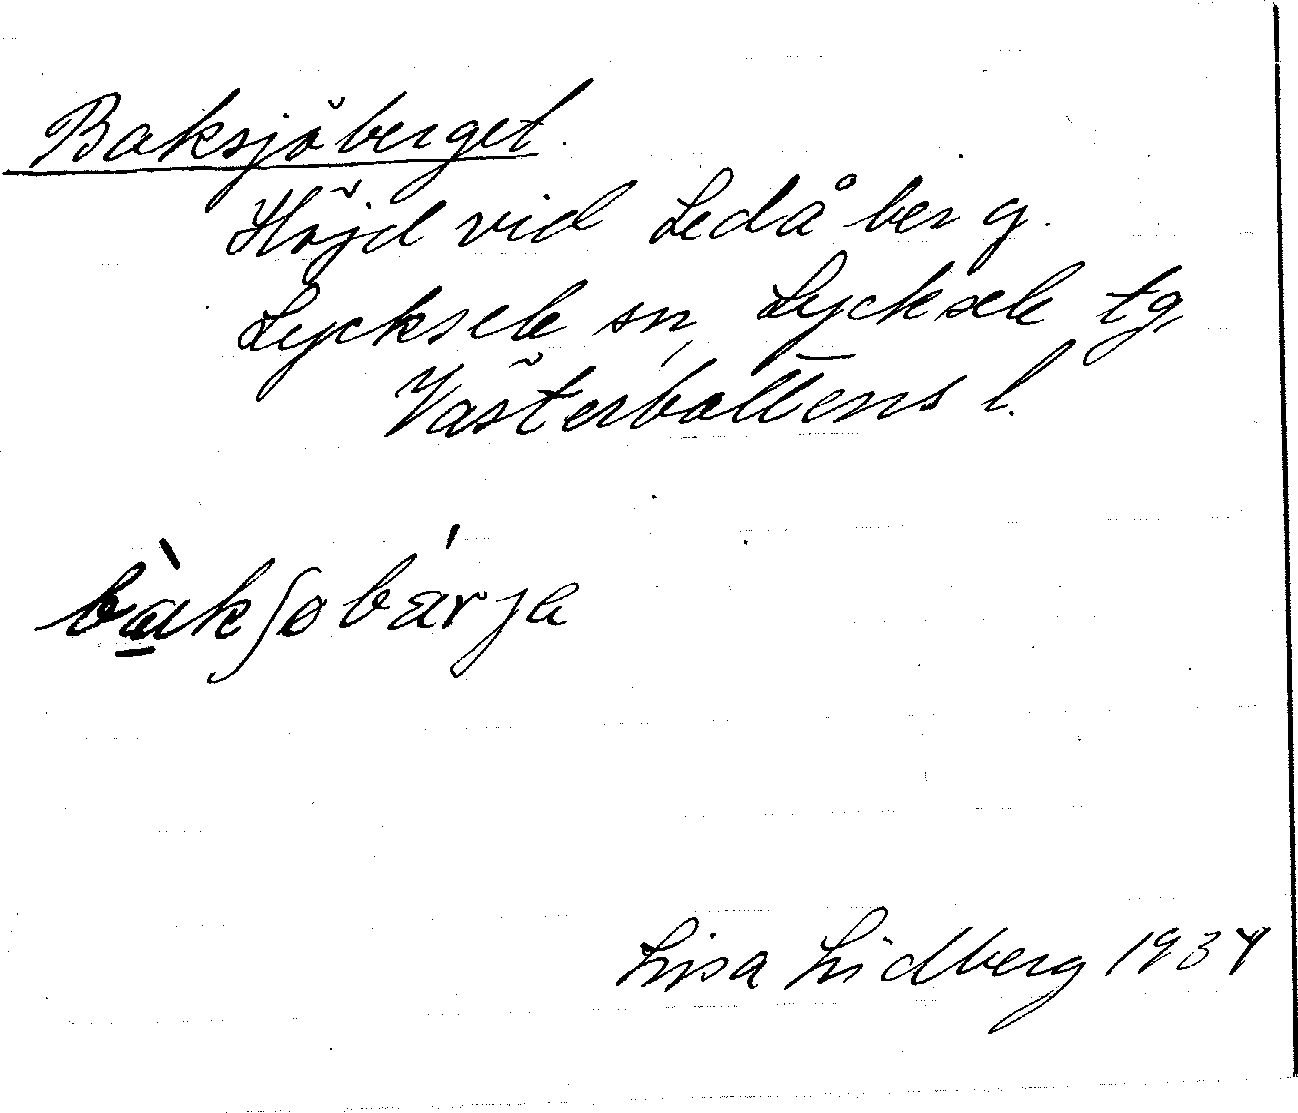 Baksjöberget.
Höjd vid Ledåberg.
Lycksele sn, Lycksele tg,
Västerbottens l.
bàkʃobárja
Lisa Lidberg 1934